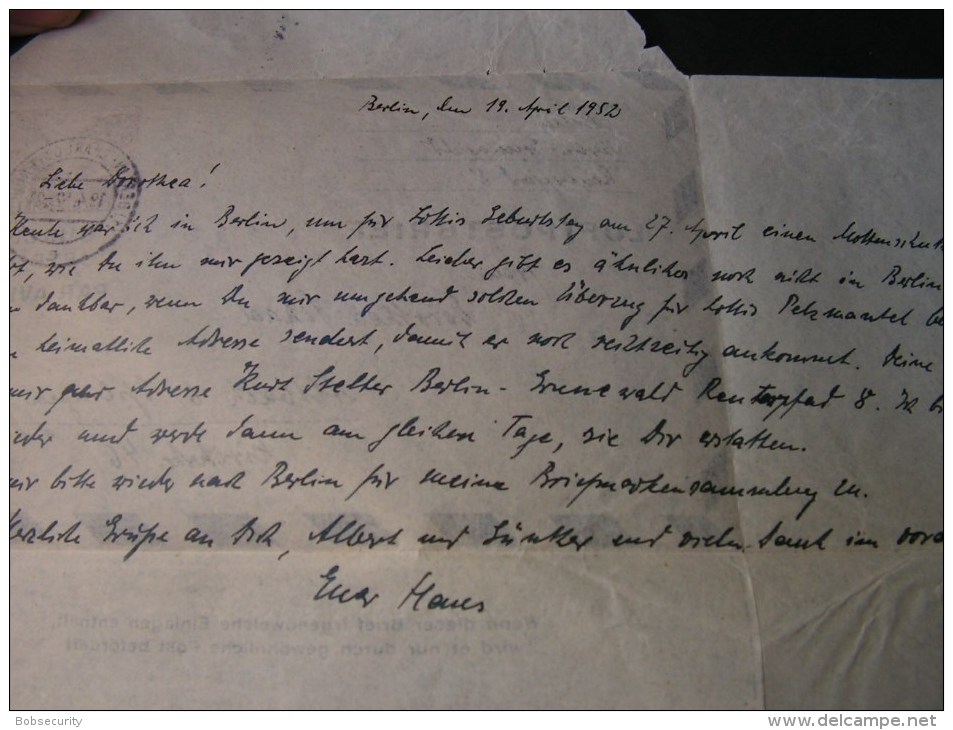 Berlin, den 19. April 1952
Liebe Dorothea!
Heute war ich in Berlin, um für Lottis Geburtstag am 27. April einen Mottenschutz
wie Du ihn mir gezeigt hast. Leider gibt es ähnliches noch nicht in Berlin
dankbar, wenn Du mir umgehend solchen Überzug für Lottis Pelzmantel
heimatliche Adresse sendest, damit er noch rechtzeitig ankommt. Deine
mir per Adresse Kurt Stelter Berlin-Grunewald 8. Ich
und werde dann am gleichen Tage, sie Dir erstatten.
mir bitte wieder nach Berlin für meine Briefmarkensammlung zu.
Herzliche Grüße an Dich, Albert und Günther und vielen Dank im
Euer Hans
Wenn dieser Brief irgendwelche Einlagen enthält,
wird er nur durch gewöhnliche Post befördert
Bobsecurity
www.delcampe.net